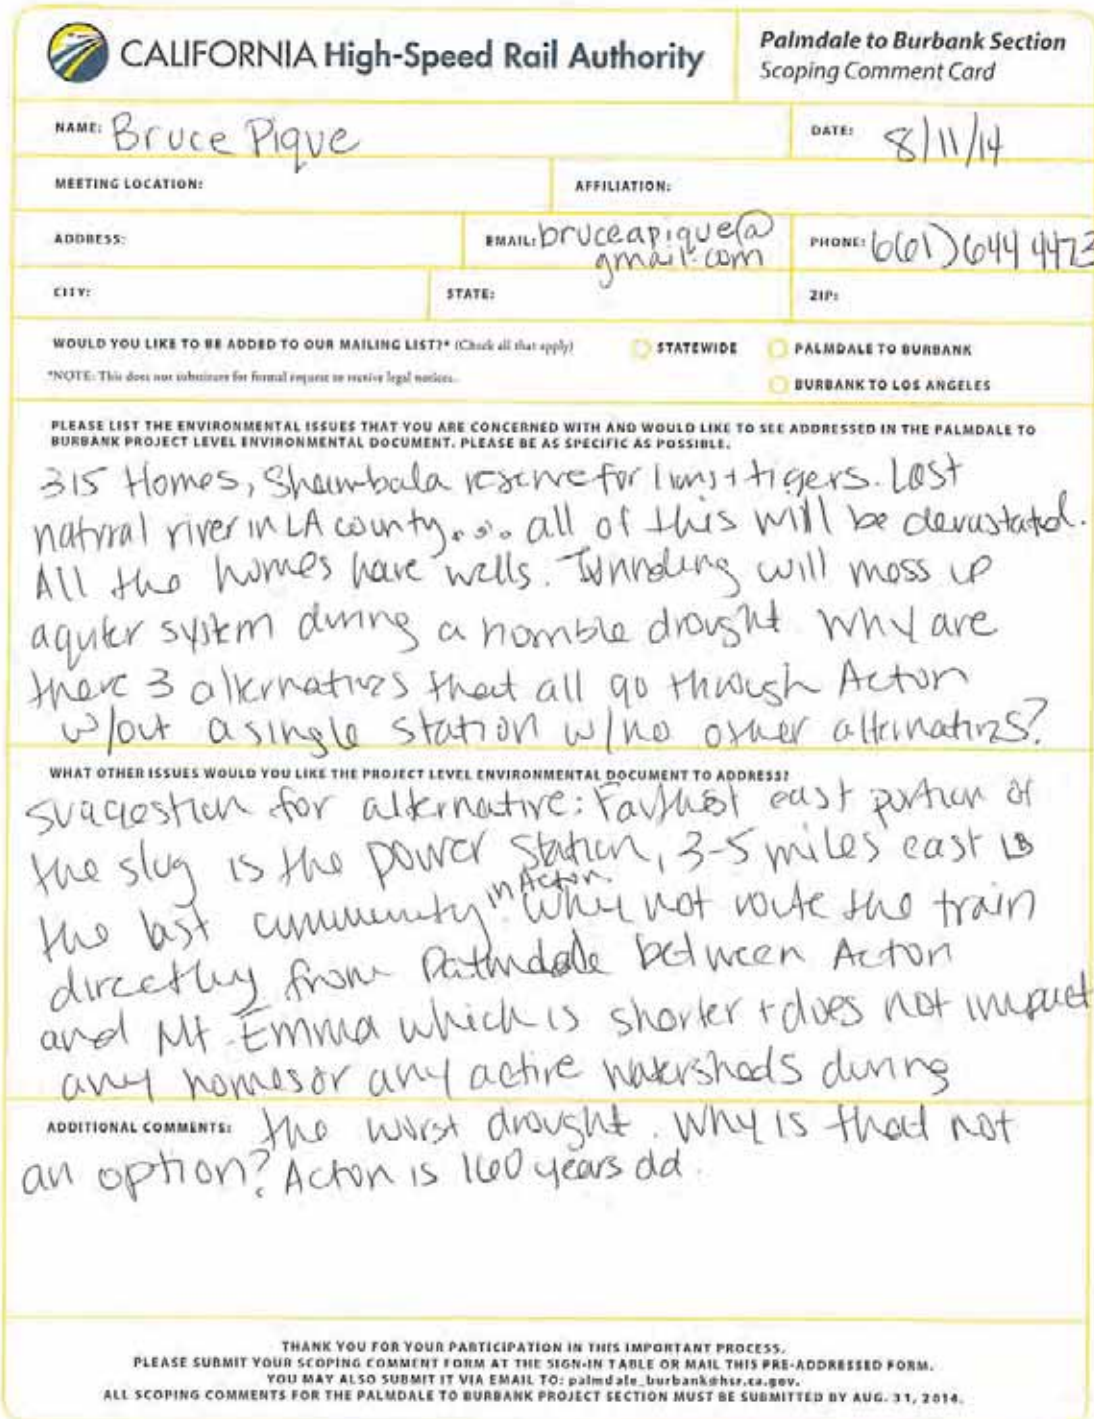 CALIFORNIA High-Speed Rail Authority
Palmdale to Burbank Section
Scoping Comment Card
NAME: Bruce Pique
DATE: 8/11/14
MEETING LOCATION:
AFFILIATION:
ADDRESS:
EMAIL: bruceapique@
gmail.com
PHONE: 661) 644 4473
CITY:
STATE:
ZIP:
WOULD YOU LIKE TO BE ADDED TO OUR MAILING LIST?* (Check all that apply)
STATEWIDE
PALMDALE TO BURBANK
*NOTE: This does not substitute for formal request to receive legal notices.
BURBANK TO LOS ANGELES
PLEASE LIST THE ENVIRONMENTAL ISSUES THAT YOU ARE CONCERNED WITH AND WOULD LIKE TO SEE ADDRESSED IN THE PALMDALE TO
BURBANK PROJECT LEVEL ENVIRONMENTAL DOCUMENT. PLEASE BE AS SPECIFIC AS POSSIBLE.
315 Homes, Shambala reserve for lions + tigers. Last
natural river in LA county.... all of this will be devastated.
All the homes have wells. Tunneling will mess up
aquifer system during a horrible drought. Why are
there 3 alternatives that all go through Acton
w/out a single station w/no other alternatives?
WHAT OTHER ISSUES WOULD YOU LIKE THE PROJECT LEVEL ENVIRONMENTAL DOCUMENT TO ADDRESS?
suggestion for alternative: Farthest east portion of
the slug is the power station, 3-5 miles east is
the last community in Acton. Why not route the train
directly from Palmdale between Acton
and Mt. Emma which is shorter + does not impact
any homes or any active watersheds during
ADDITIONAL COMMENTS: the worst drought. Why is that not
an option? Acton is 160 years old.
THANK YOU FOR YOUR PARTICIPATION IN THIS IMPORTANT PROCESS.
PLEASE SUBMIT YOUR SCOPING COMMENT FORM AT THE SIGN-IN TABLE OR MAIL THIS PRE-ADDRESSED FORM.
YOU MAY ALSO SUBMIT IT VIA EMAIL TO: palmdale_burbank@hsr.ca.gov.
ALL SCOPING COMMENTS FOR THE PALMDALE TO BURBANK PROJECT SECTION MUST BE SUBMITTED BY AUG. 31, 2014.